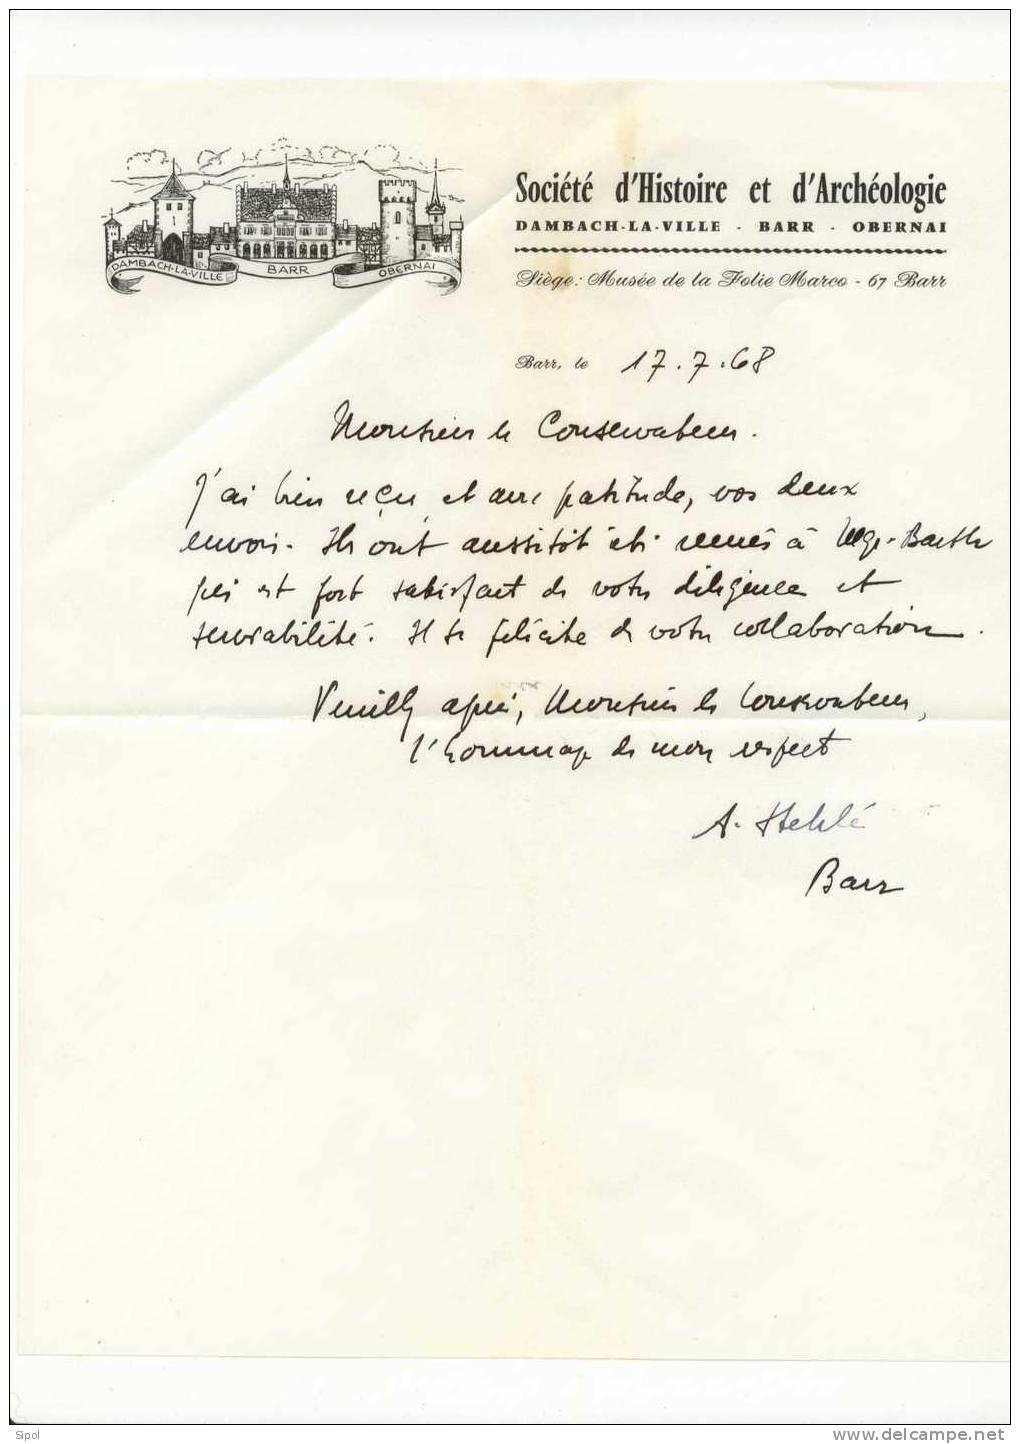 Société d'Histoire et d'Archéologie
DAMBACH-LA-VILLE - BARR - OBERNAI
DAMBACH-LA-VILLE
BARR
OBERNAI
Siège: Musée de la Folie Marco - 67 Barr
Barr, le 17.7.68
Monsieur le Conservateur.
J'ai bien reçu, et avec gratitude, vos deux
envois. Ils ont aussitôt été remis à Mgr. Barth
qui est fort satisfait de votre diligence et
serviabilité. Il se félicite de votre collaboration.
Veuillez agréer, Monsieur le Conservateur,
l'hommage de mon respect
A. Stehlé
Barr
Sipol
www.delcampe.net